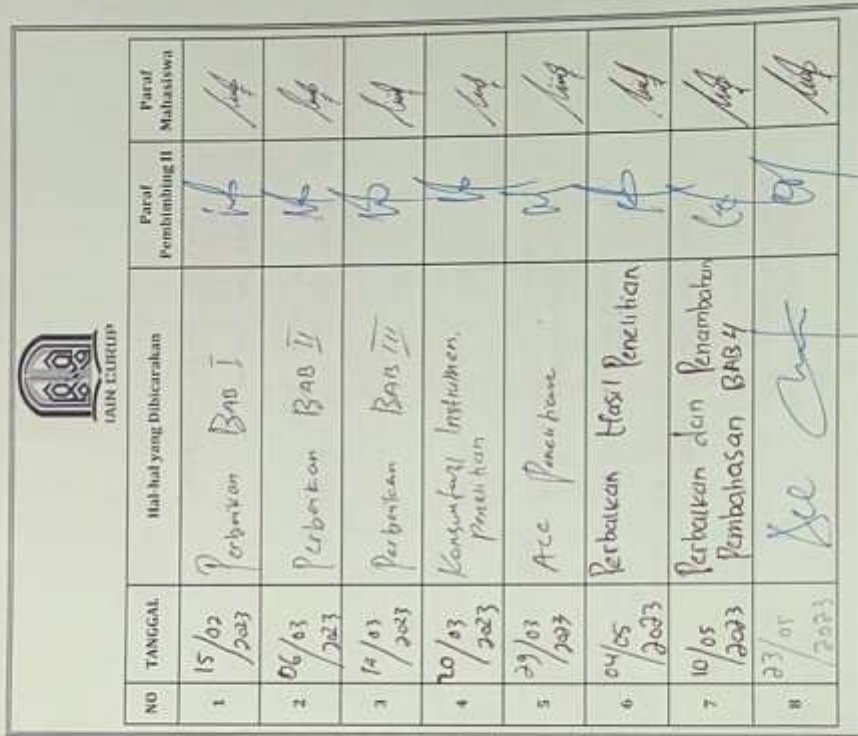 IAIN CURUP
NO TANGGAL Hal-hal yang Dibicarakan Paraf Pembimbing II Paraf Mahasiswa
1 15/02 2023 Perbaikan BAB I
2 06/03 2023 Perbaikan BAB II
3 14/03 2023 Perbaikan BAB III
4 20/03 2023 Konsultasi Instrumen.
Penelitian
5 29/03 2023 Acc Penelitian
6 04/05 2023 Perbaikan Hasil Penelitian
7 10/05 2023 Perbaikan dan Penambahan
Pembahasan BAB 4
8 23/05 2023 Acc